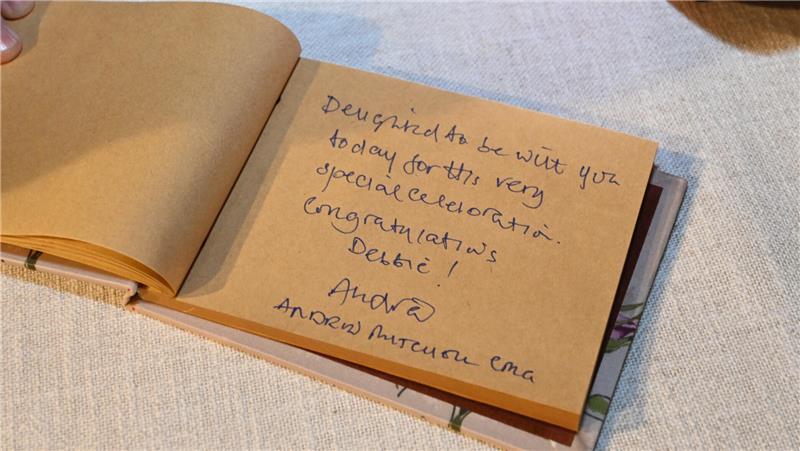 Delighted to be with you
today for this very
special celebration.
Congratulations
Debbie!
Andrew
ANDREW MITCHELL CMG